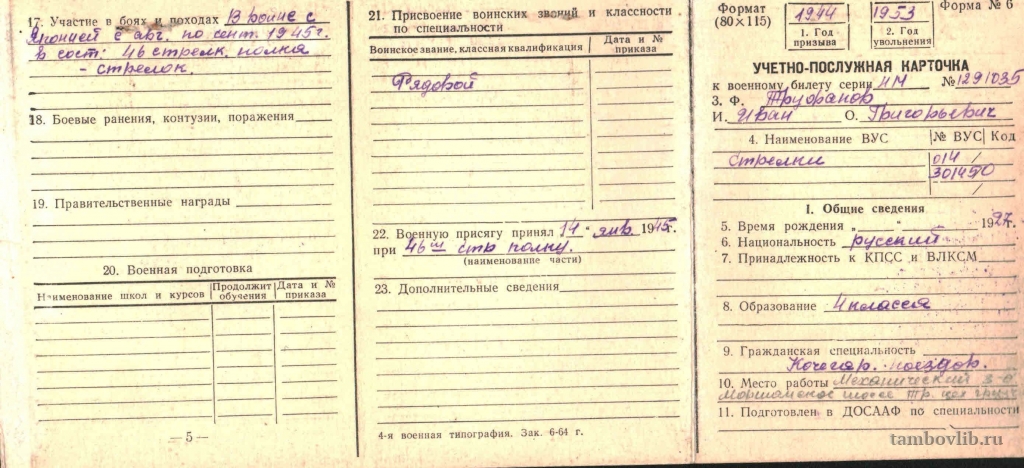 17. Участие в боях и походах В войне с
Японией с авг. по сент. 1945 г.
в сост. 46 стрелк. полка
- стрелок.
18. Боевые ранения, контузии, поражения
19. Правительственные награды
20. Военная подготовка
Наименование школ и курсов
Продолжит обучения
Дата и № приказа
— 5 —
21. Присвоение воинских званий и классности
по специальности
Воинское звание, классная квалификация
Дата и № приказа
Рядовой
22. Военную присягу принял „14" янв. 1945 г.
при 46м стр полку.
(наименование части)
23. Дополнительные сведения
4-я военная типография. Зак. 6-64 г.
Формат
(80×115)
1944
1. Год
призыва
1953
2. Год
увольнения
Форма № 6
УЧЕТНО-ПОСЛУЖНАЯ КАРТОЧКА
к военному билету серии НМ № 1291035
3. Ф. Труфанов
И. Иван О. Григорьевич
4. Наименование ВУС
№ ВУС
Код
Стрелки
014 /
301450
/
I. Общие сведения
5. Время рождения „ " 1927 г.
6. Национальность русский
7. Принадлежность к КПСС и ВЛКСМ
8. Образование 4 класса
9. Гражданская специальность
Кочегар. поездов.
10. Место работы Механический з-д
шоссе
11. Подготовлен в ДОСААФ по специальности
tambovlib.ru